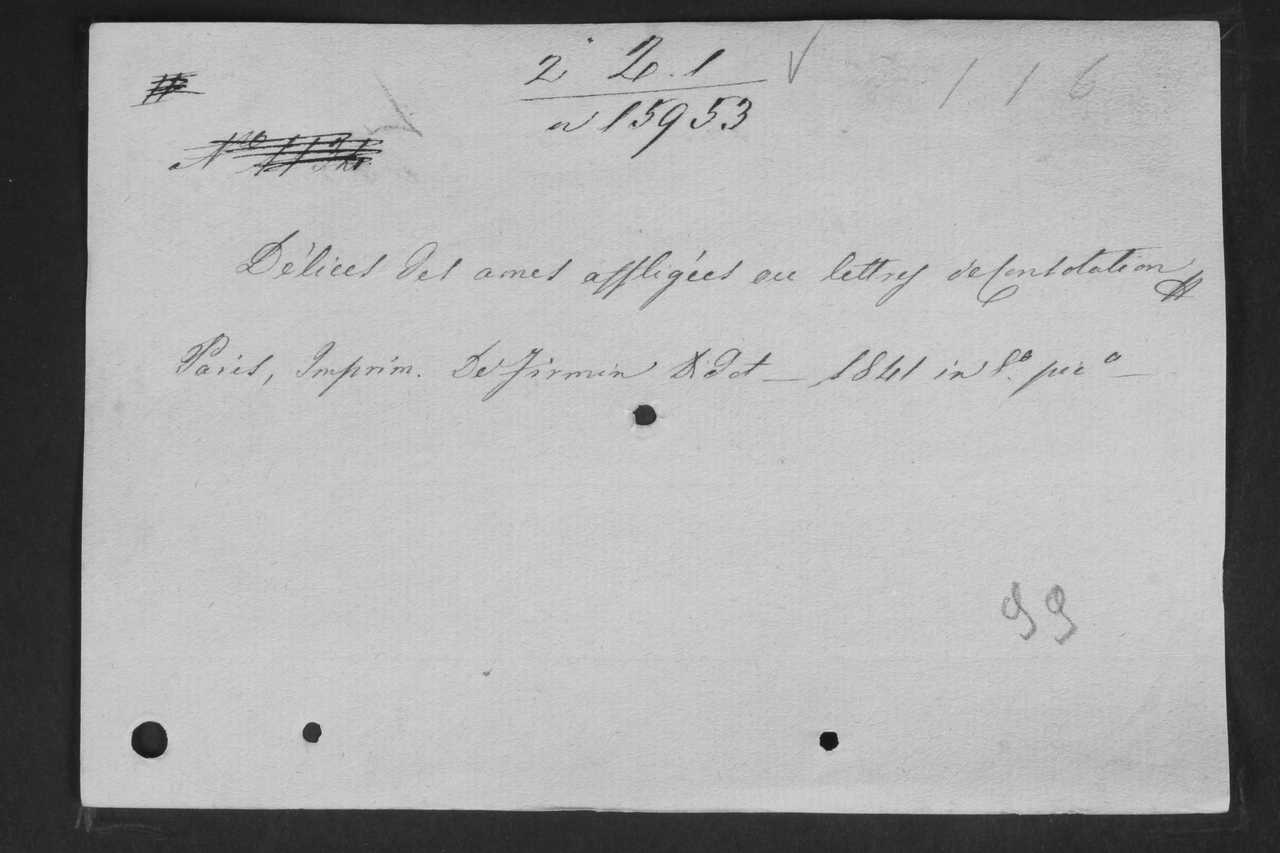 2ª Z.1 ✓
n 15953
116
Nº
Délices des ames affligées ou lettres de Consolation
Paris, Imprim. De Firmin Didot — 1841 in 8º picº —
99